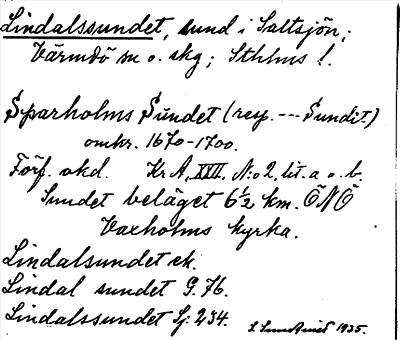 Lindalssundet, sund i Saltsjön;
Värmdö sn o. skg; Sthlms l.
Sparholms Sundet (resp. --- Sundit)
omkr. 1670-1700.
Förf. okd. Kr A, XVII, N:o 2, lit. a o. b.
Sundet beläget 6½ km. ÖNÖ
Vaxholms kyrka.
Lindalsundet ek.
Lindal sundet G. 76.
Lindalssundet Sj: 234.
1935.